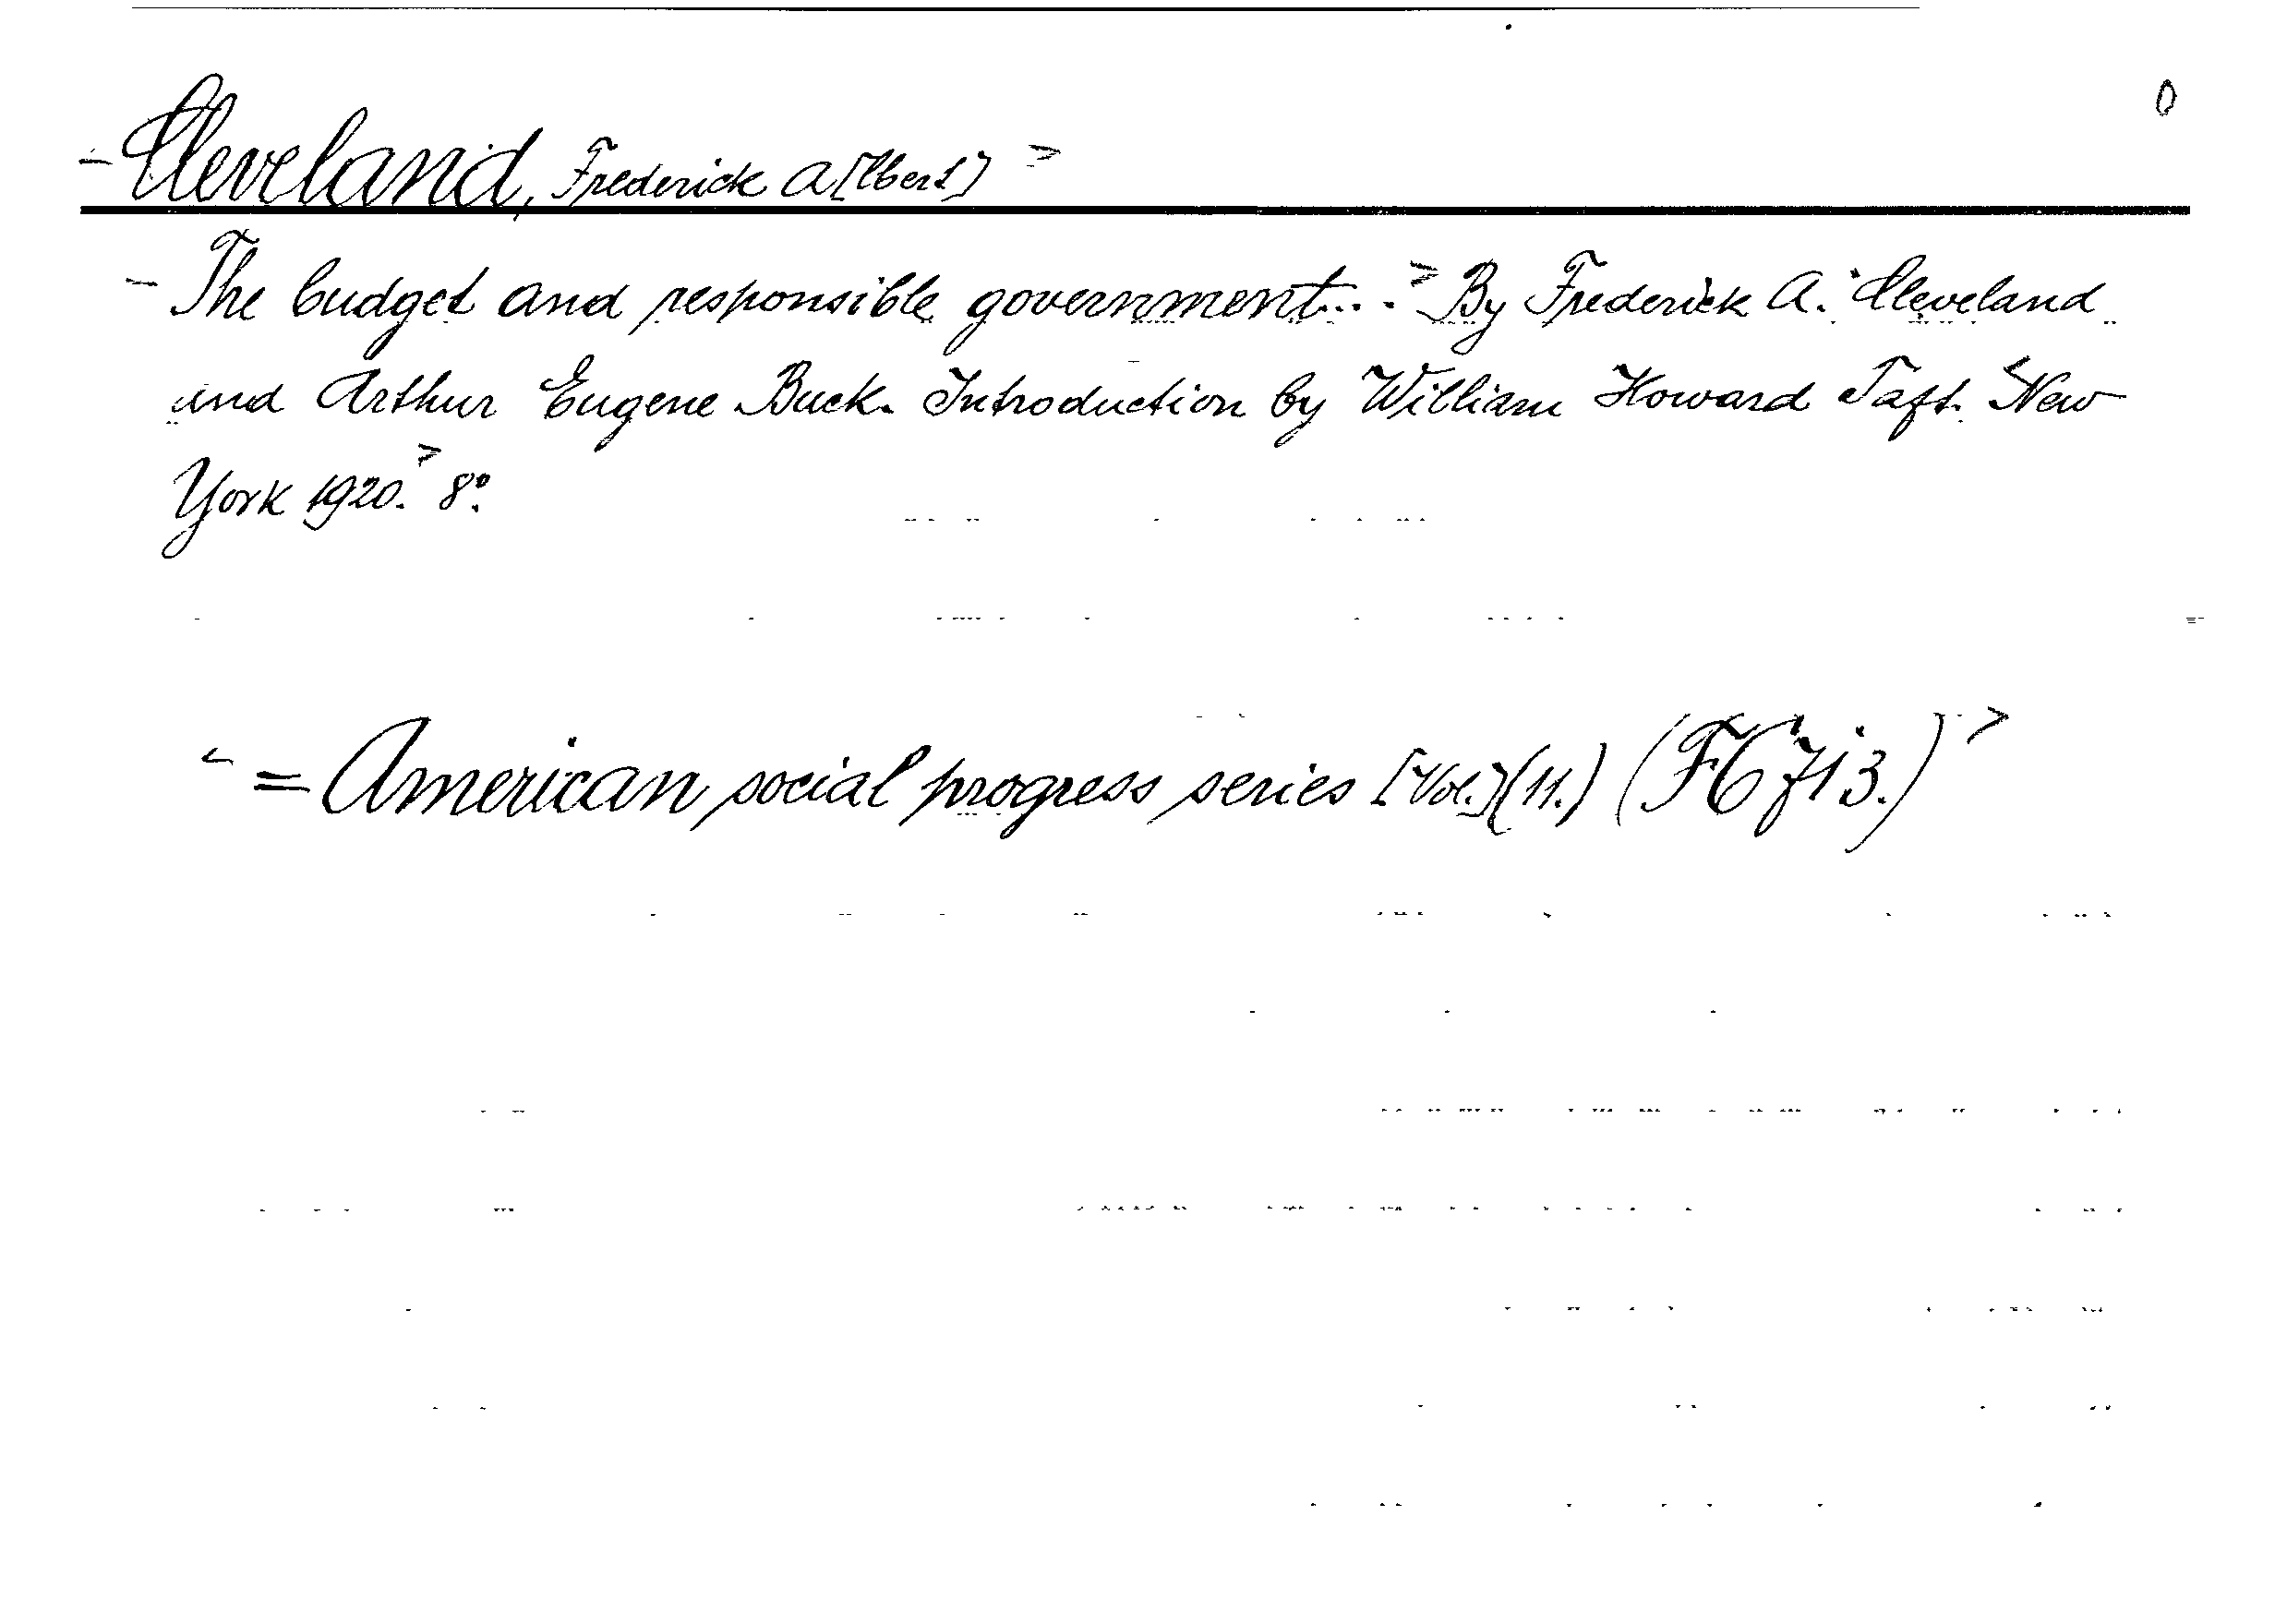 0
Cleveland, Frederick A[lbert]
The budget and responsible government... By Frederick A. Cleveland
and Arthur Eugene Buck. Introduction by William Howard Taft. New
York 1920. 8°.
= American social progress series [Vol.](11.) (FC713.)